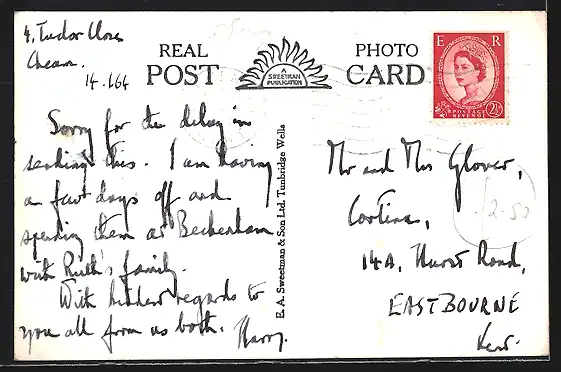 4, Tudor Close
Cheam.
14.1.64
REAL PHOTO
POST CARD
A
SWEETMAN
PUBLICATION
E R
POSTAGE
REVENUE
2½
Sorry for the delay in
sending this. I am having
a few days off and
spending them at Beckenham
with Ruth's family.
With kindest regards to
you all from us both. Harry.
E. A. Sweetman & Son Ltd. Tunbridge Wells
Mr and Mrs Glover,
Cortina,
14A, Hurst Road,
EASTBOURNE
Kent.
2.50